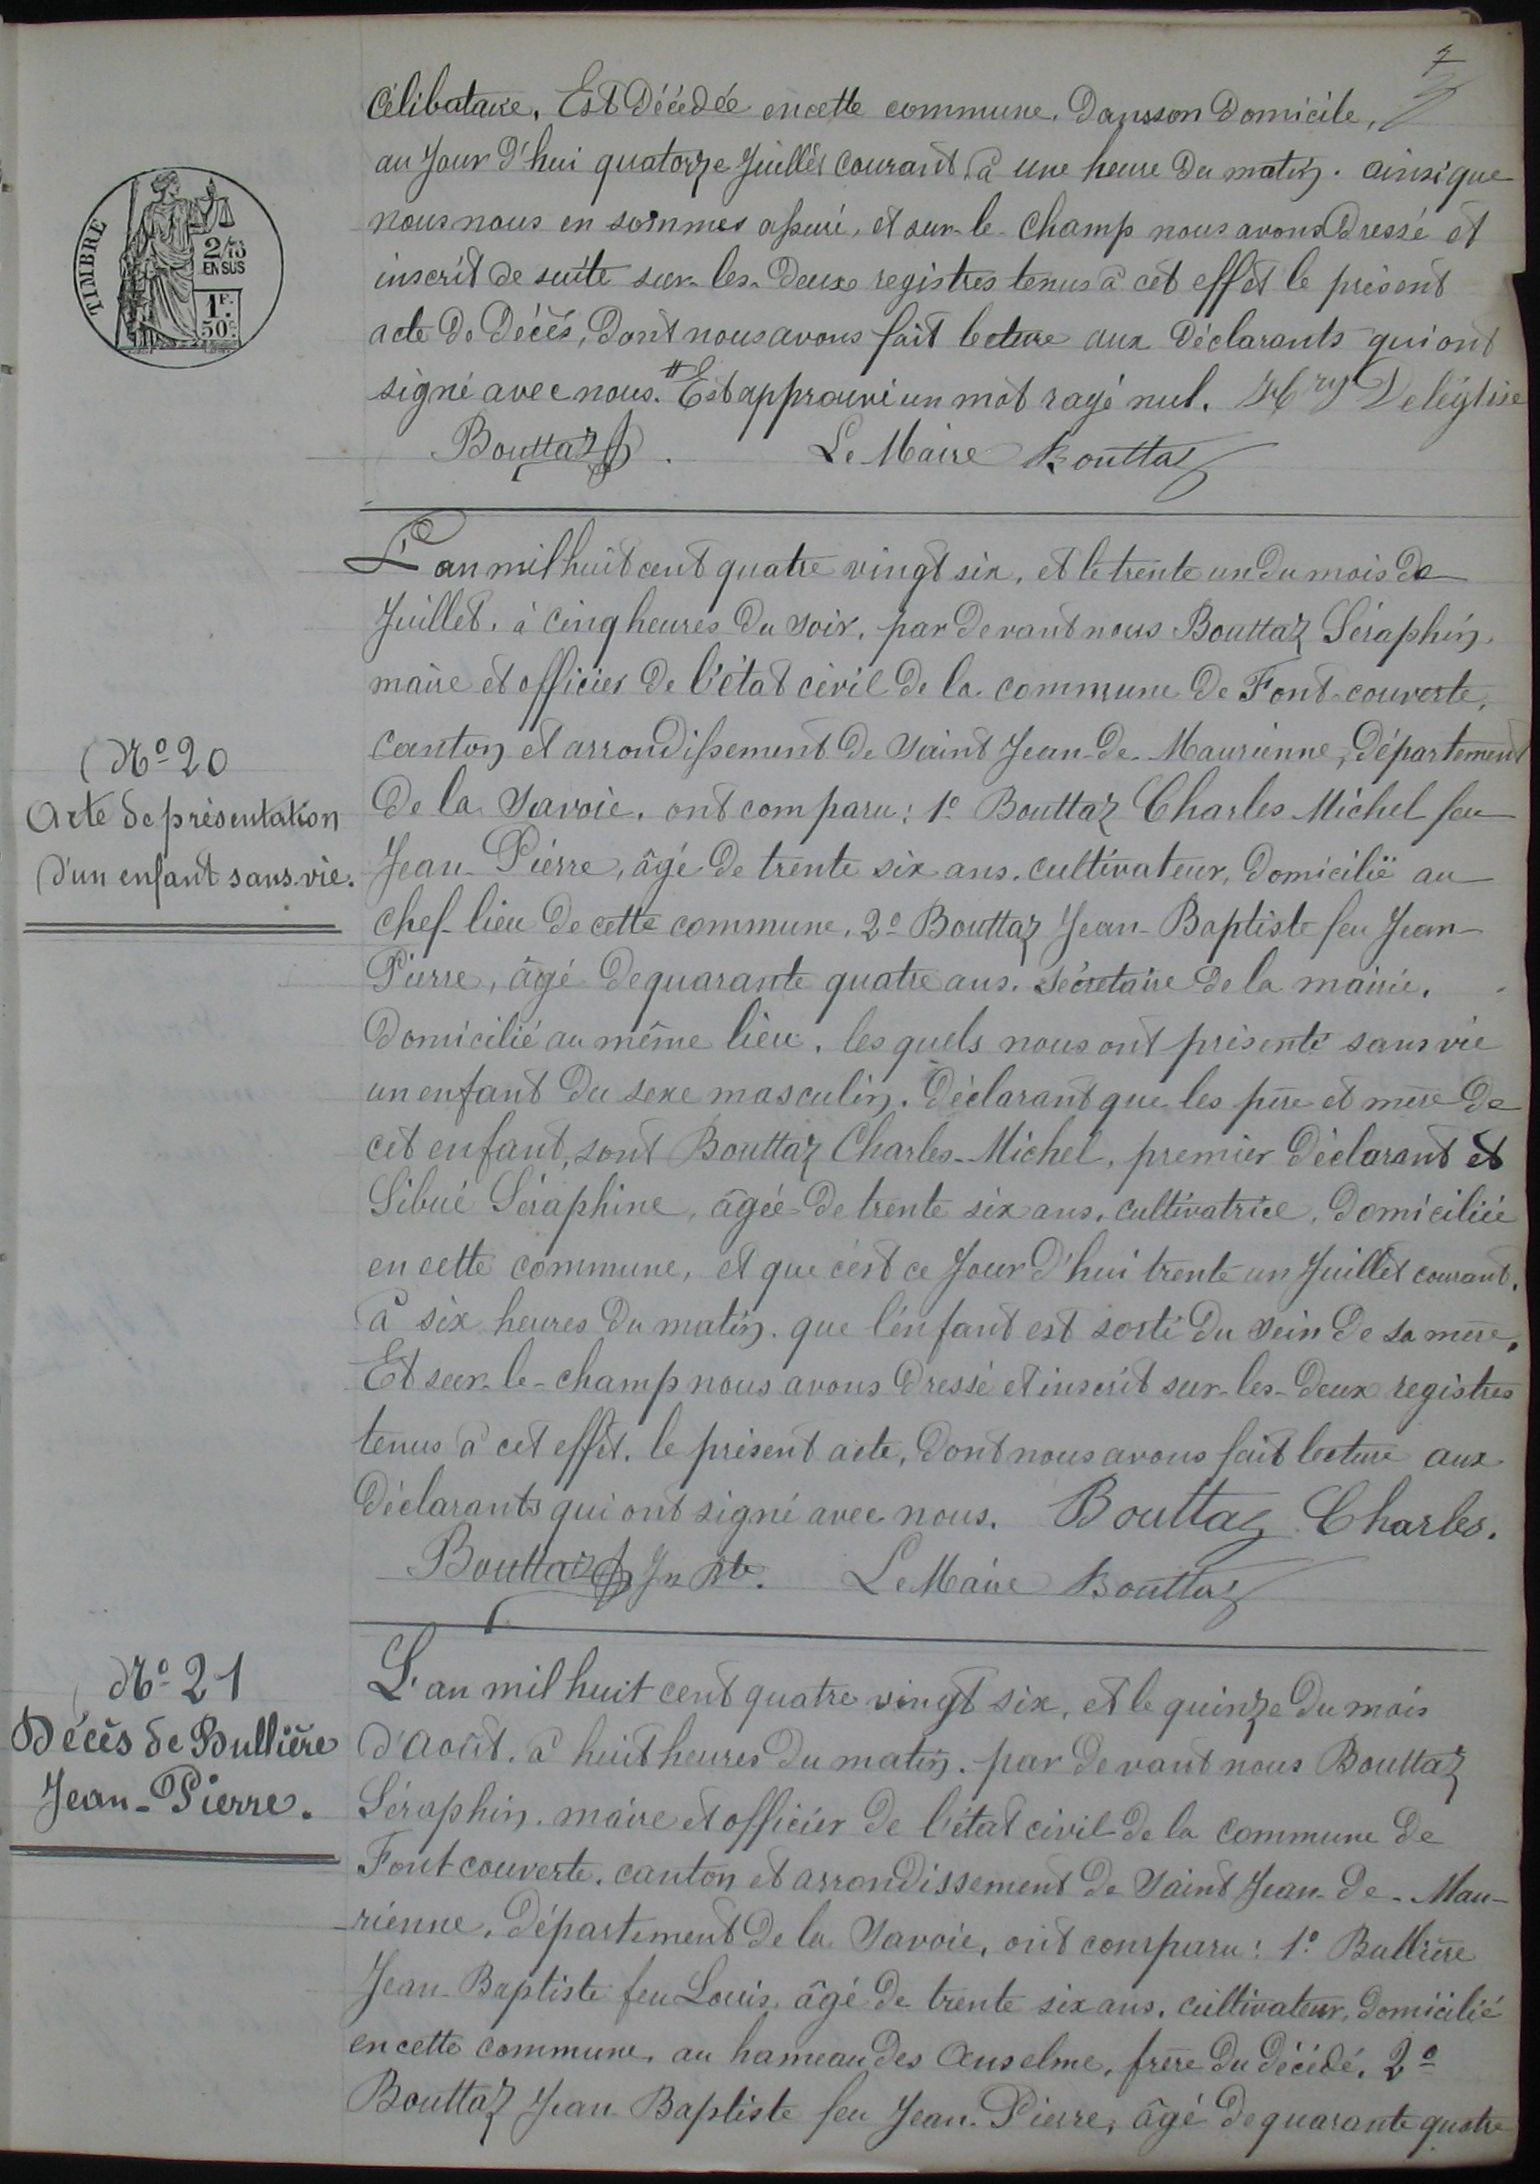 7
célibataire, Est Décédée en cette commune, Dans son Domicile,
au Jour d'hui quatorze Juillet courant, à une heure du matin. ainsi que
nous nous en sommes assuré, et sur-le-champ nous avons dressé et
inscrit de suite sur-les-deux registres tenus à cet effet le présent
acte de décès, dont nous avons fait lecture aux déclarants qui ont
signé avec nous. # Est approuvé un mot rayé nul. Deléglise
Bouttaz Le Maire Bouttaz
TIMBRE
2/10
EN SUS
1F.
50c.
N° 20
Acte de présentation
d'un enfant sans vie.
L'an mil huit cent quatre vingt six, et le trente un du mois de
Juillet, à cinq heures du soir, par devant nous Bouttaz Séraphin,
maire et officier de l'état civil de la commune de Font-couverte,
canton et arrondissement de Saint Jean-de-Maurienne, département
de la Savoie, ont comparu: 1° Bouttaz Charles Michel feu
Jean-Pierre, âgé de trente six ans, cultivateur, domicilié au
chef-lieu de cette commune, 2° Bouttaz Jean-Baptiste feu Jean-
Pierre, âgé de quarante quatre ans, secrétaire de la mairie,
domicilié au même lieu, les quels nous ont présenté sans vie
un enfant du sexe masculin, déclarant que les père et mère de
cet enfant, sont Bouttaz Charles-Michel, premier déclarant et
Sibué Séraphine, âgée de trente six ans, cultivatrice, domiciliée
en cette commune, et que c'est ce Jour d'hui trente un Juillet courant,
à six heures du matin, que l'enfant est sorti du sein de sa mère,
Et sur-le-champ nous avons dressé et inscrit sur-les-deux registres
tenus à cet effet, le présent acte, dont nous avons fait lecture aux
déclarants qui ont signé avec nous. Bouttaz Charles.
Bouttaz Jn Bte. Le Maire Bouttaz
N° 21
Décès de Bullière
Jean-Pierre.
L'an mil huit cent quatre vingt six, et le quinze du mois
d'Août, à huit heures du matin, par devant nous Bouttaz
Séraphin, maire et officier de l'état civil de la commune de
Font couverte, canton et arrondissement de Saint Jean-de-Mau-
-rienne, département de la Savoie, ont comparu: 1° Bullière
Jean-Baptiste feu Louis, âgé de trente six ans, cultivateur, domicilié
en cette commune, au hameau des Anselme, frère du décédé, 2°
Bouttaz Jean Baptiste feu Jean-Pierre, âgé de quarante quatre